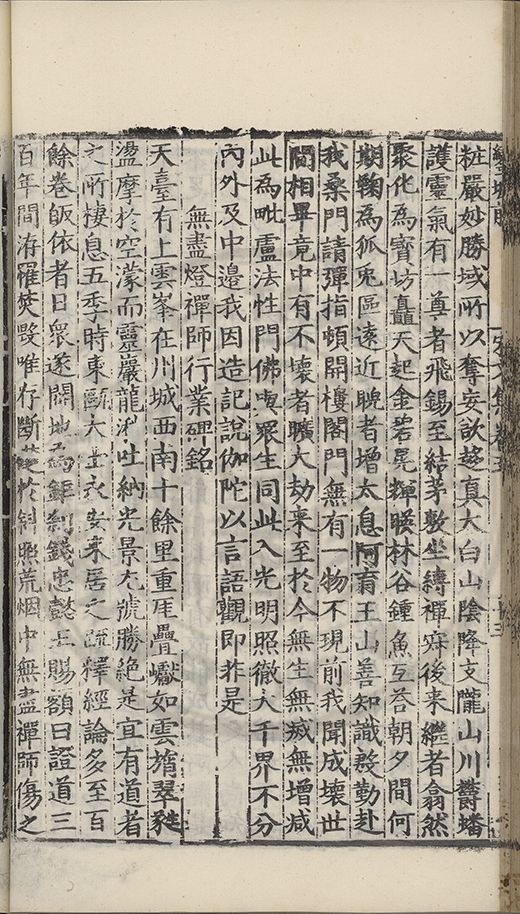 粧嚴妙勝域所以奪妄歆趍真大白山陰降支隴山川鬱蟠
護靈氣有一尊者飛錫至結茅敷坐縛禪寂後来繼者翕然
聚化為寶坊矗天起金碧晃輝暎林谷鍾魚互荅朝夕間何
期鞠為狐兎區遠近睨者增太息阿育王山善知識殷勤赴
我桑門請彈指頓開樓閣門無有一物不現前我聞成壞世
間相畢竟中有不壞者曠大劫来至於今無生無滅無增減
此為毗盧法性門佛與衆生同此入光明照徹大千界不分
内外及中邉我因造記說伽陀以言語觀即非是
無盡燈禪師行業碑銘
天臺有上雲峯在川城西南十餘里重厓疊巘如雲墻翠
盪摩於空濛而靈巖龍湫吐納光景尤號勝絶是宜有道者
之所棲息五季時東甌大士永安来居之疏釋經論多至百
餘卷皈依者日衆遂闢地為錢忠懿王賜額曰證道三
百年間洊罹焚毀唯存斷於斜照荒烟中無盡禪師傷之